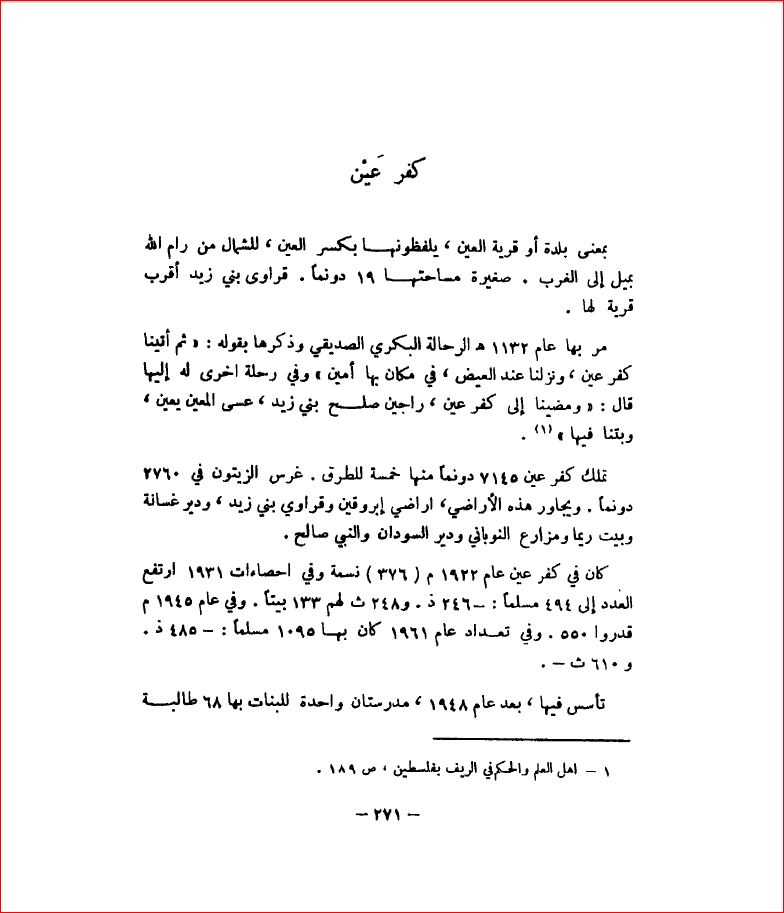 كفر عَيْن
بمعنى بلدة أو قرية العين ، يلفظونها بكسر العين ، للشمال من رام الله
بميل إلى الغرب . صغيرة مساحتها ١٩ دونماً . قراوى بني زيد أقرب
قرية لها .
مر بها عام ١١٣٢ هـ الرحالة البكري الصديقي وذكرها بقوله : « ثم أتينا
كفر عين ، ونزلنا عند العيض ، في مكان بها أمين » وفي رحلة اخرى له إليها
قال : « ومضينا إلى كفر عين ، راجين صلح بني زيد ، عسى المعين يعين ،
وبتنا فيها » (١) .
تملك كفر عين ٧١٤٥ دونماً منها خمسة للطرق . غرس الزيتون في ٢٧٦٠
دونماً . ويجاور هذه الأراضي، اراضي إبروقين وقراوي بني زيد ، ودير غسانة
وبيت ريما ومزارع النوباني ودير السودان والنبي صالح .
كان في كفر عين عام ١٩٢٢ م ( ٣٧٦ ) نسمة وفي احصاءات ١٩٣١ ارتفع
العدد إلى ٤٩٤ مسلماً : – ٢٤٦ ذ . و٢٤٨ ث لهم ١٣٣ بيتاً . وفي عام ١٩٤٥ م
قدروا ٥٥٠ . وفي تعداد عام ١٩٦١ كان بها ١٠٩٥ مسلماً : – ٤٨٥ ذ .
و ٦١٠ ث – .
تأسس فيها ، بعد عام ١٩٤٨ ، مدرستان واحدة للبنات بها ٦٨ طالبة
١ – اهل العلم والحكم في الريف بفلسطين ، ص ١٨٩ .
– ٢٧١ –